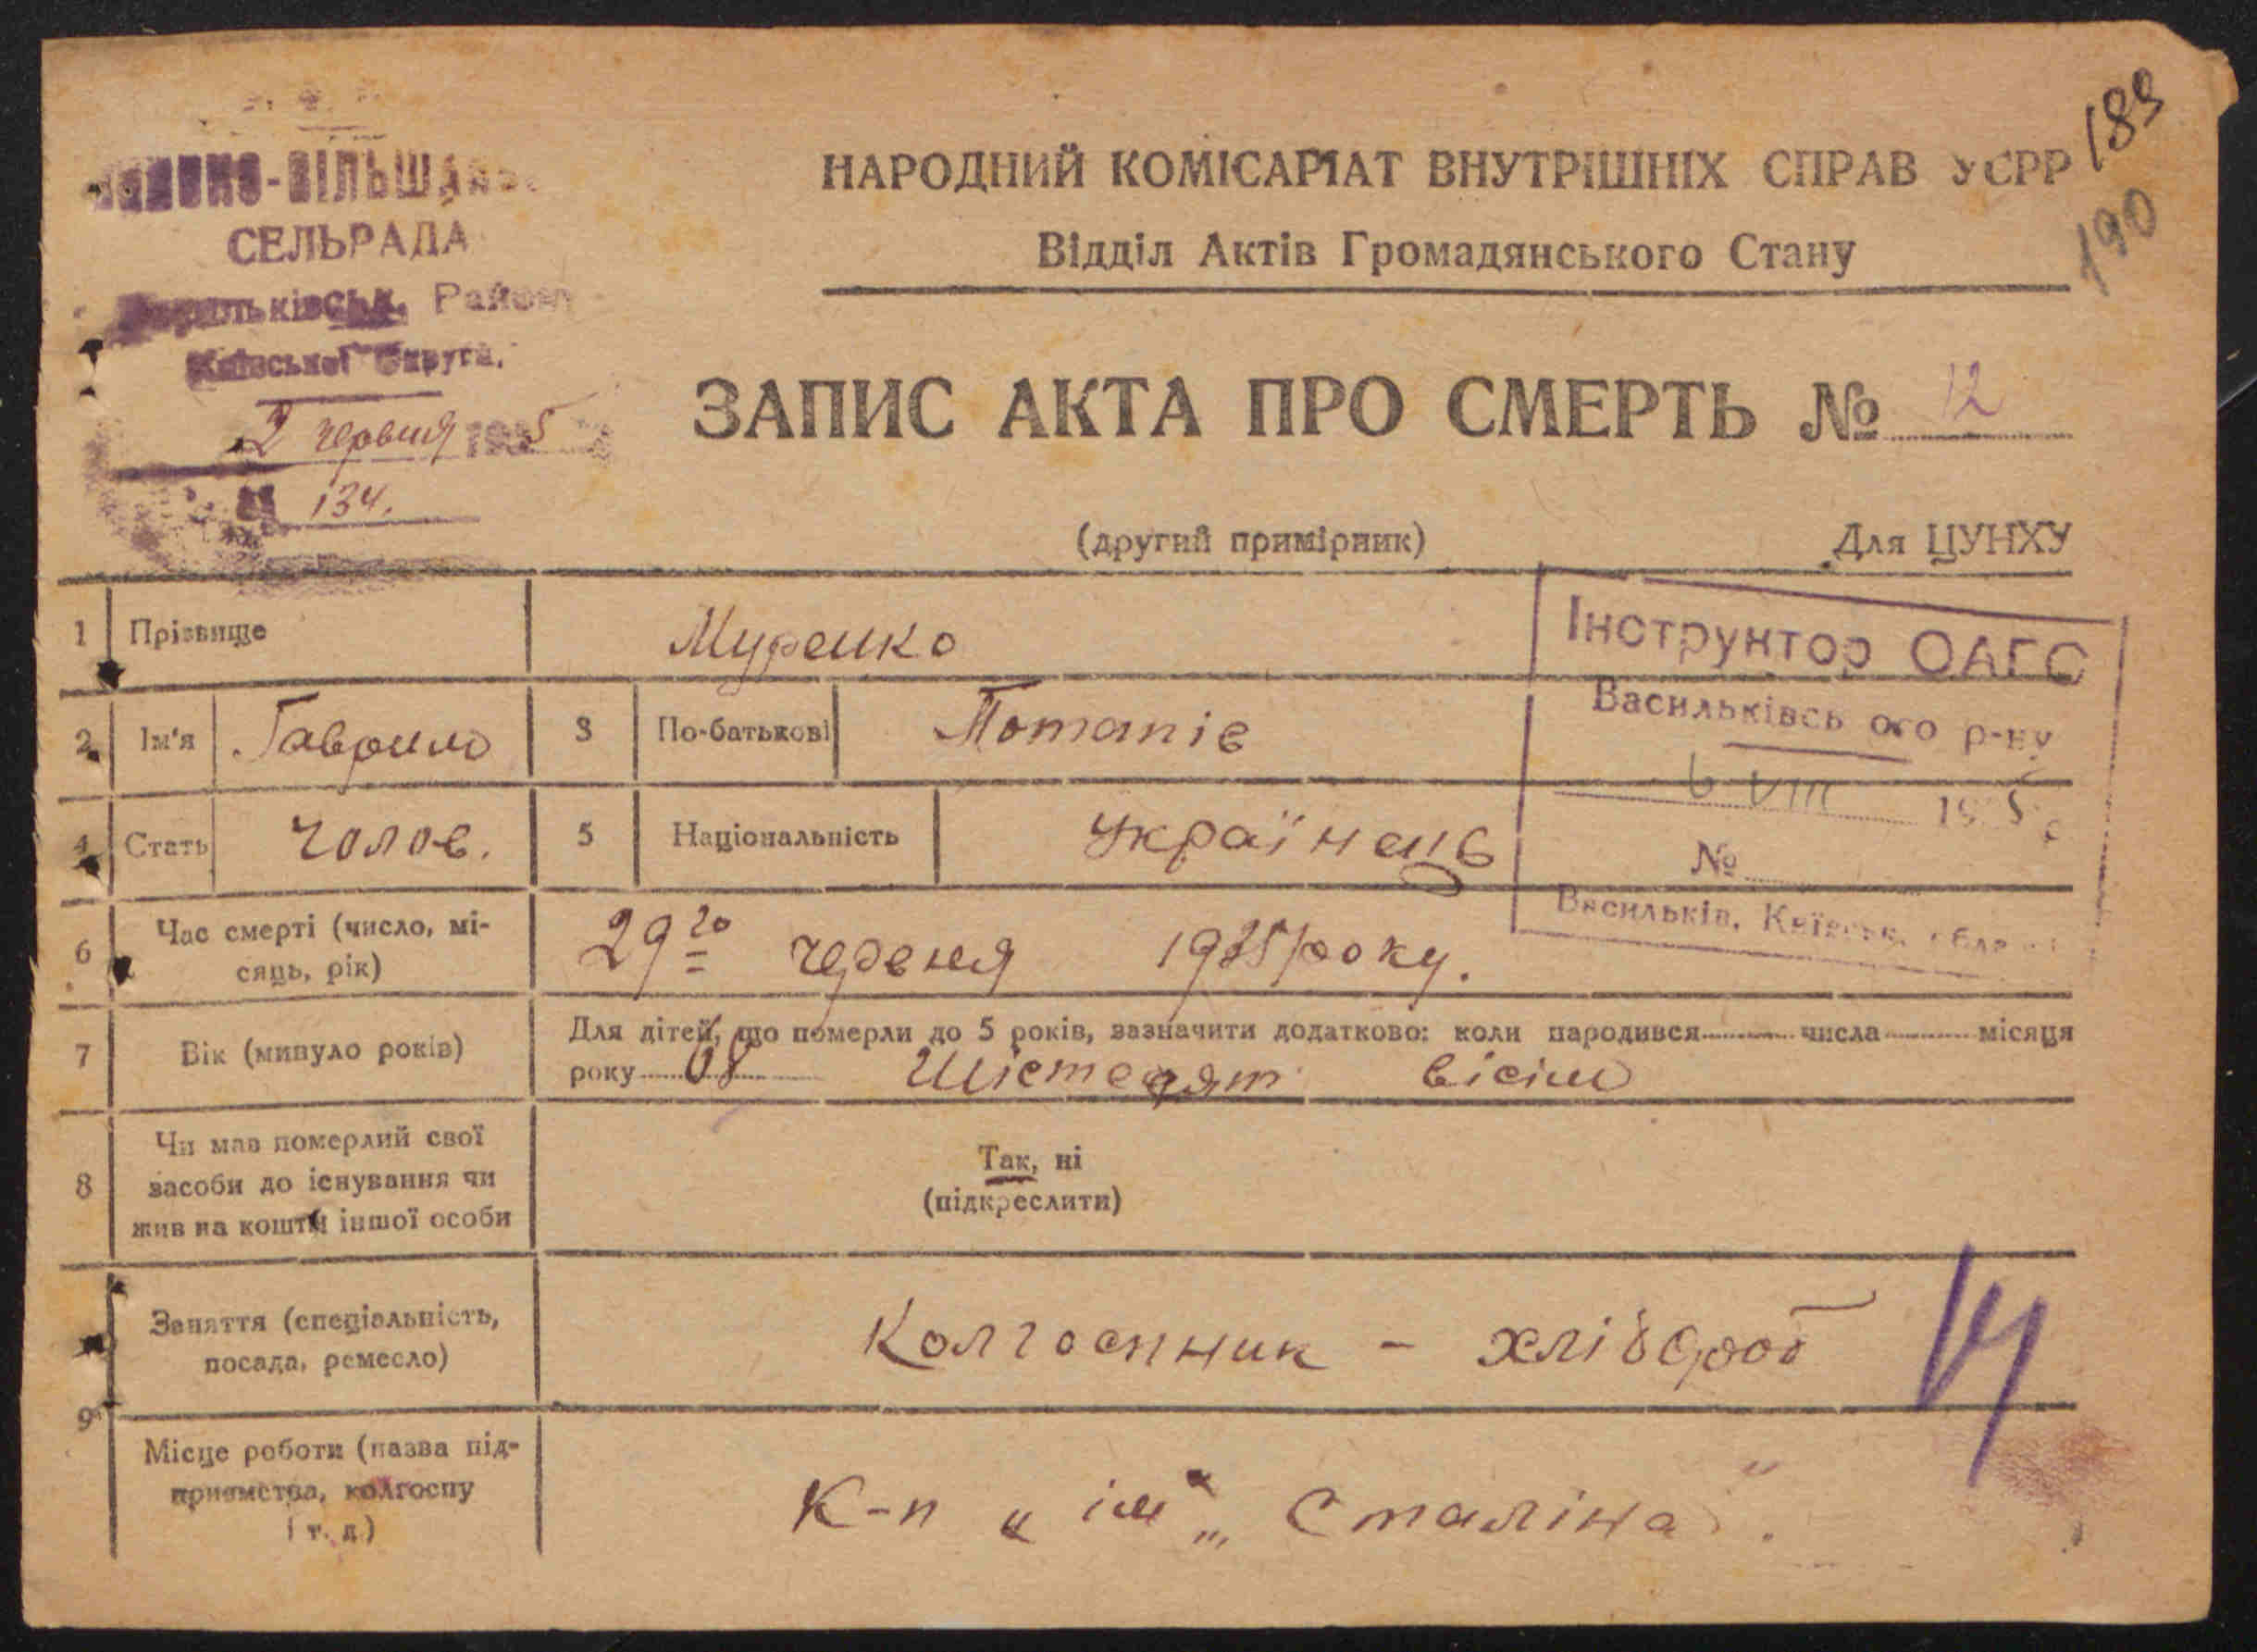 СЕЛЬРАДА
Район
2 червня 1935
134.
189
190
НАРОДНИЙ КОМІСАРІАТ ВНУТРІШНІХ СПРАВ УСРР
Відділ Актів Громадянського Стану
ЗАПИС АКТА ПРО СМЕРТЬ № 12
(другий примірник)
Для ЦУНХУ
Інструктор ОАГС
Васильківсь ого р-ну
6 VIII 19 5
№
Васильків, Київськ.
1 Прізвище Муренко
2 Ім'я Гаврило 3 По-батькові Потапів
4 Стать Чолов. 5 Національність Українець
6 Час смерті (число, мі-
сяць, рік) 29го червня 1935 року.
7 Вік (минуло років) Для дітей, що померли до 5 років, зазначити додатково: коли народився числа місяця
року 68 Шістедят вісім
8 Чи мав померлий свої
засоби до існування чи
жив на кошти іншої особи
Так, ні
(підкреслити)
9 Заняття (спеціальність,
посада, ремесло) Колгоспник - хлібороб
Місце роботи (назва під-
приємства, колгоспу
і т. д.) К-п „ ім " „ Сталіна".